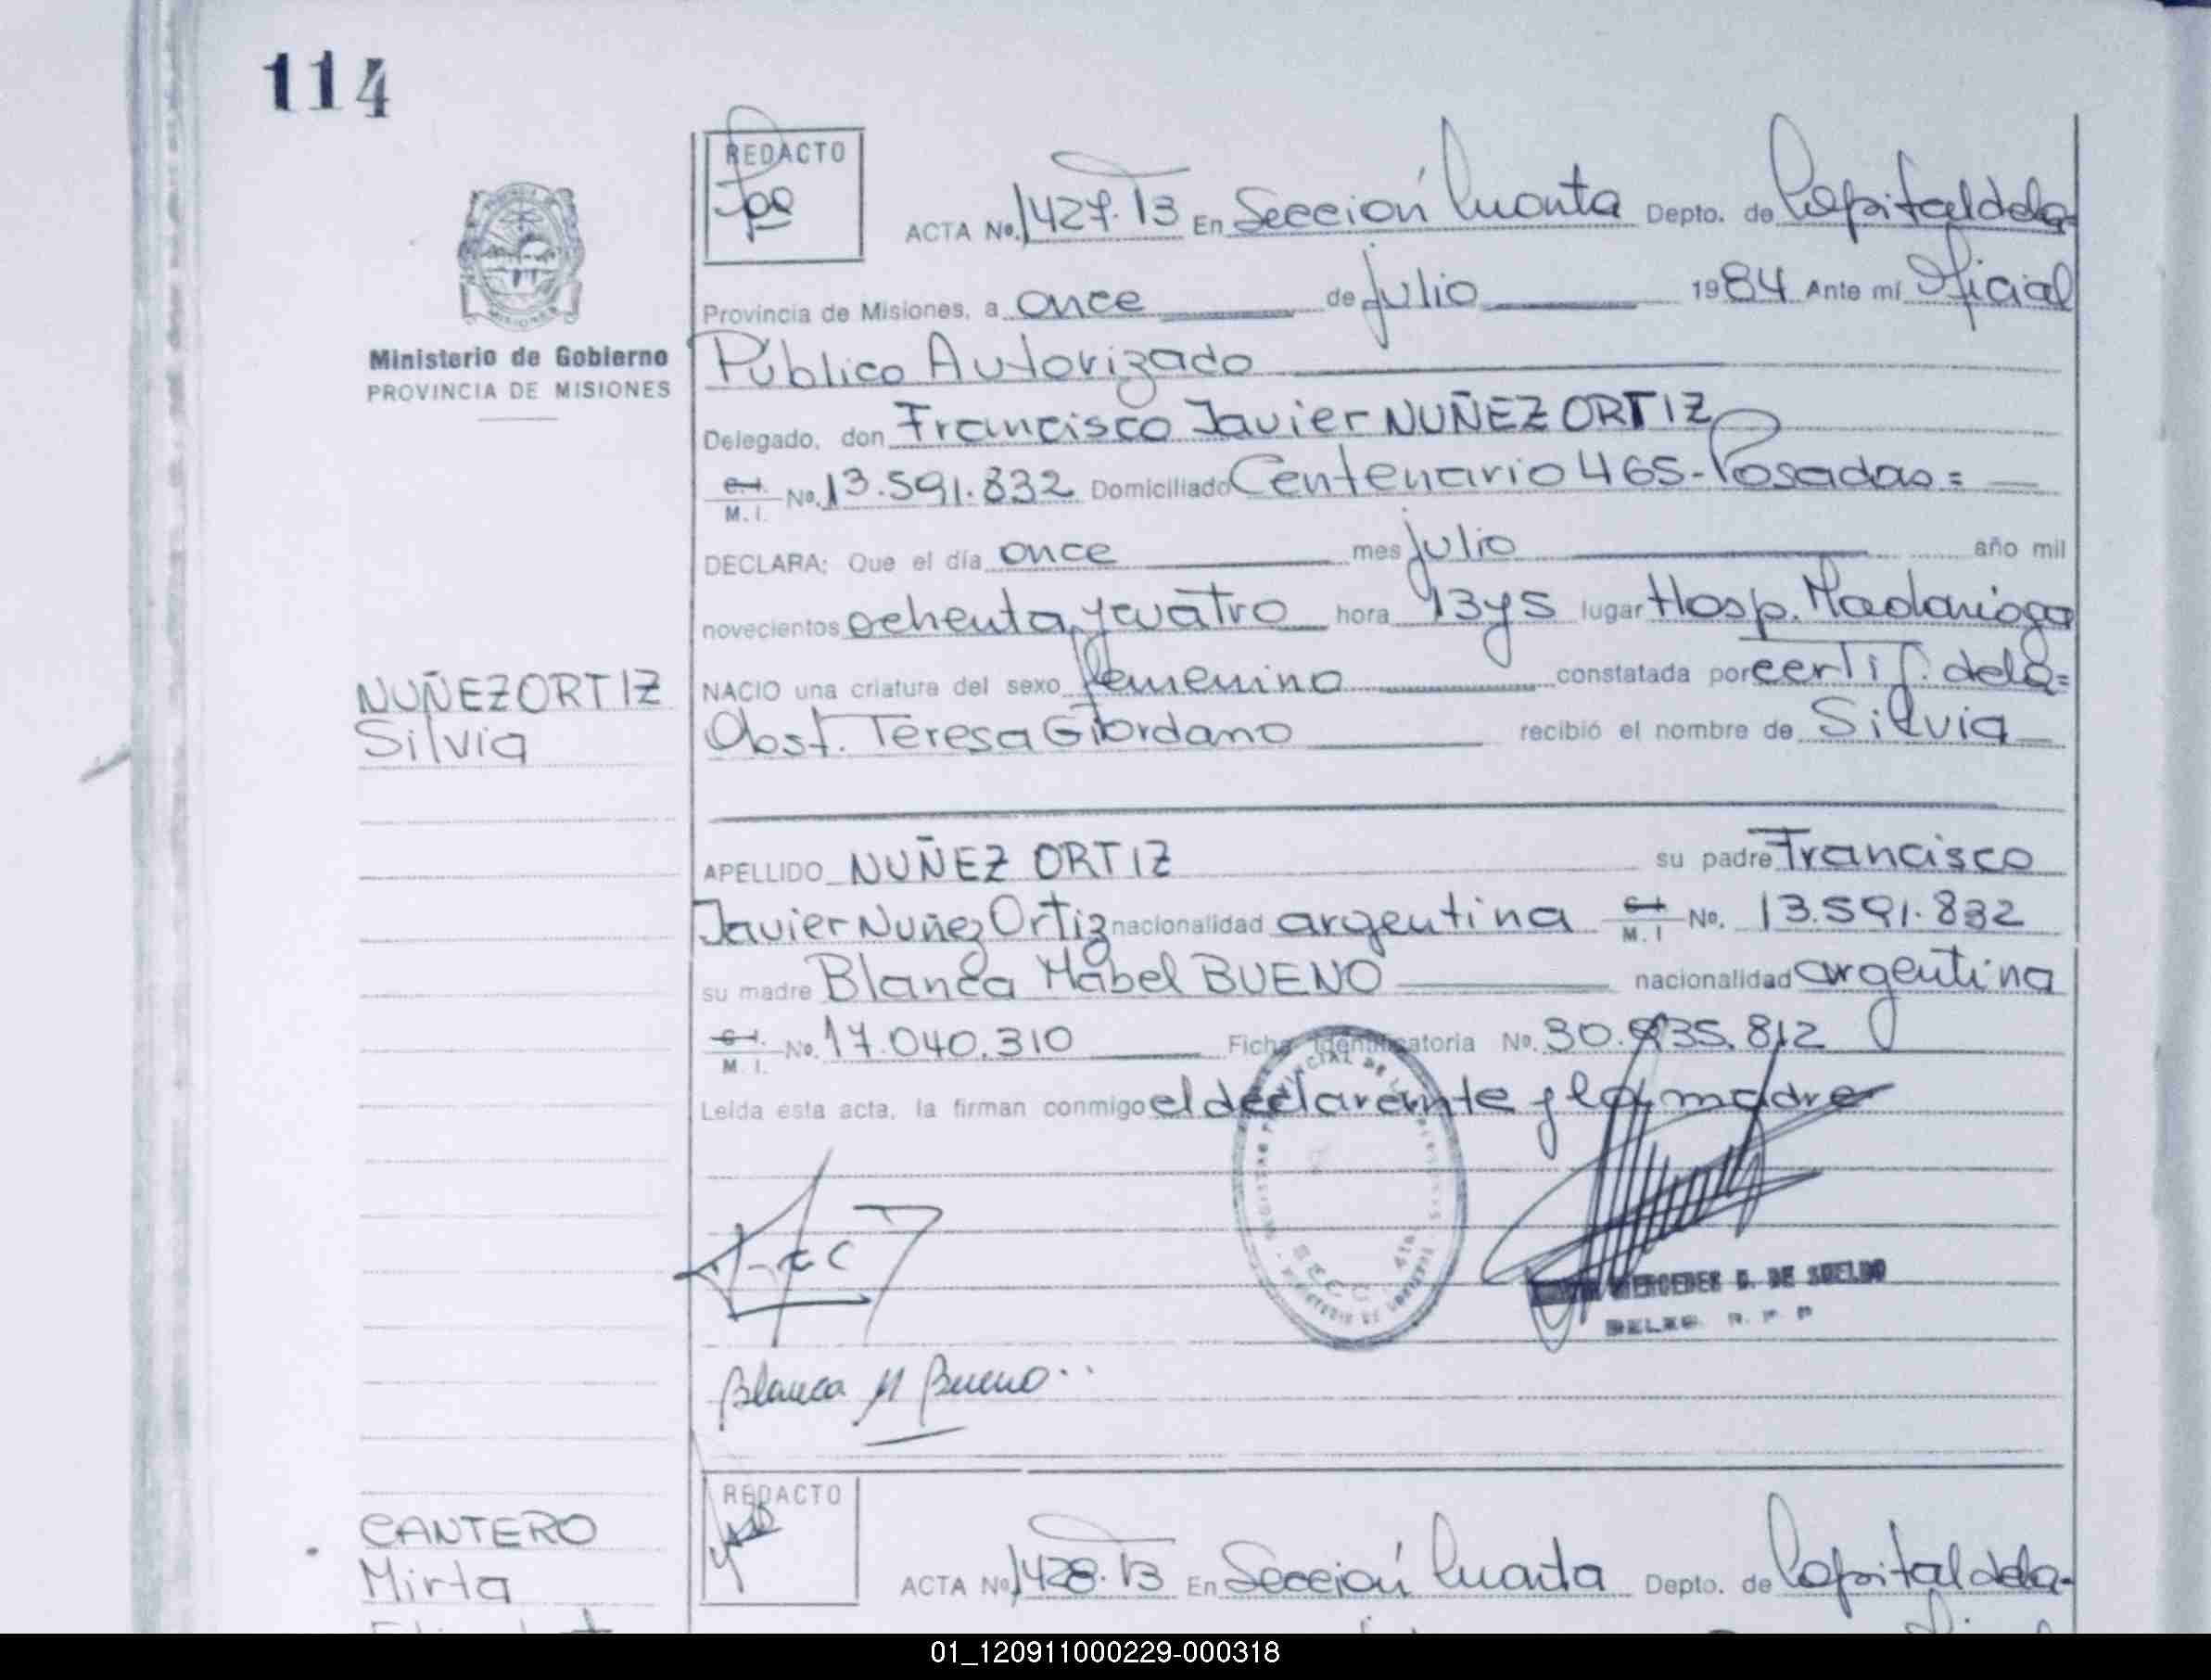 114
REDACTO
ACTA No. 1427. T3 En Sección Cuarta Depto. de Capital de la
Provincia de Misiones, a once de julio 1984 Ante mí Oficial
Ministerio de Gobierno
PROVINCIA DE MISIONES
Público Autorizado
Delegado, don Francisco Javier NUÑEZ ORTIZ
C.I. M.I. No. 13.591.832 Domiciliado Centenario 465-Posadas=
DECLARA: Que el día once mes julio año mil
novecientos ochenta y cuatro hora 13 y 5 lugar Hosp. Madariaga
NUÑEZ ORTIZ
Silvia
NACIO una criatura del sexo femenino constatada por certif. de la=
Obst. Teresa Giordano recibió el nombre de Silvia
APELLIDO NUÑEZ ORTIZ su padre Francisco
Javier Nuñez Ortiz nacionalidad argentina C.I. M.I No. 13.591.832
su madre Blanca Mabel BUENO nacionalidad argentina
C.I. M.I. No. 17.040.310 Ficha Identificatoria No. 30.835.812
Leída esta acta, la firman conmigo el declarante y la madre
MERCEDES G. DE SUELDO
DELEG. R. P. P
Blanca M Bueno
REDACTO
CANTERO
Mirta
ACTA No. 1428. T3 En Sección Cuarta Depto. de Capital de la-
01_120911000229-000318